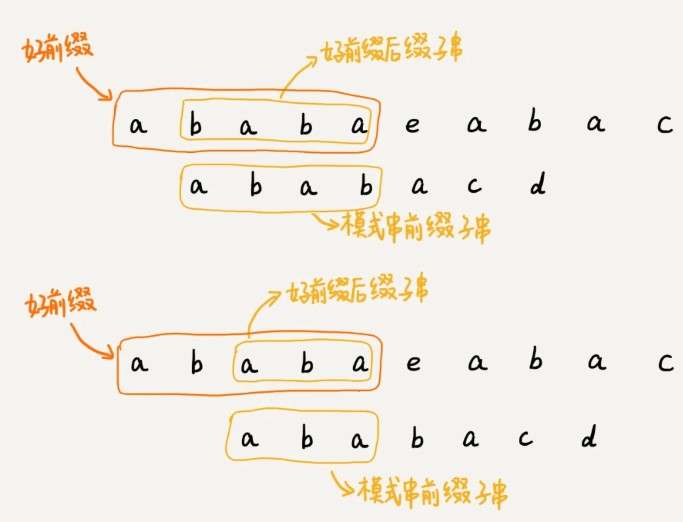 好前缀
好前缀后缀子串
a b a b a e a b a c
a b a b a c d
模式串前缀子串
好前缀后缀子串
好前缀
a b a b a e a b a c
a b a b a c d
模式串前缀子串